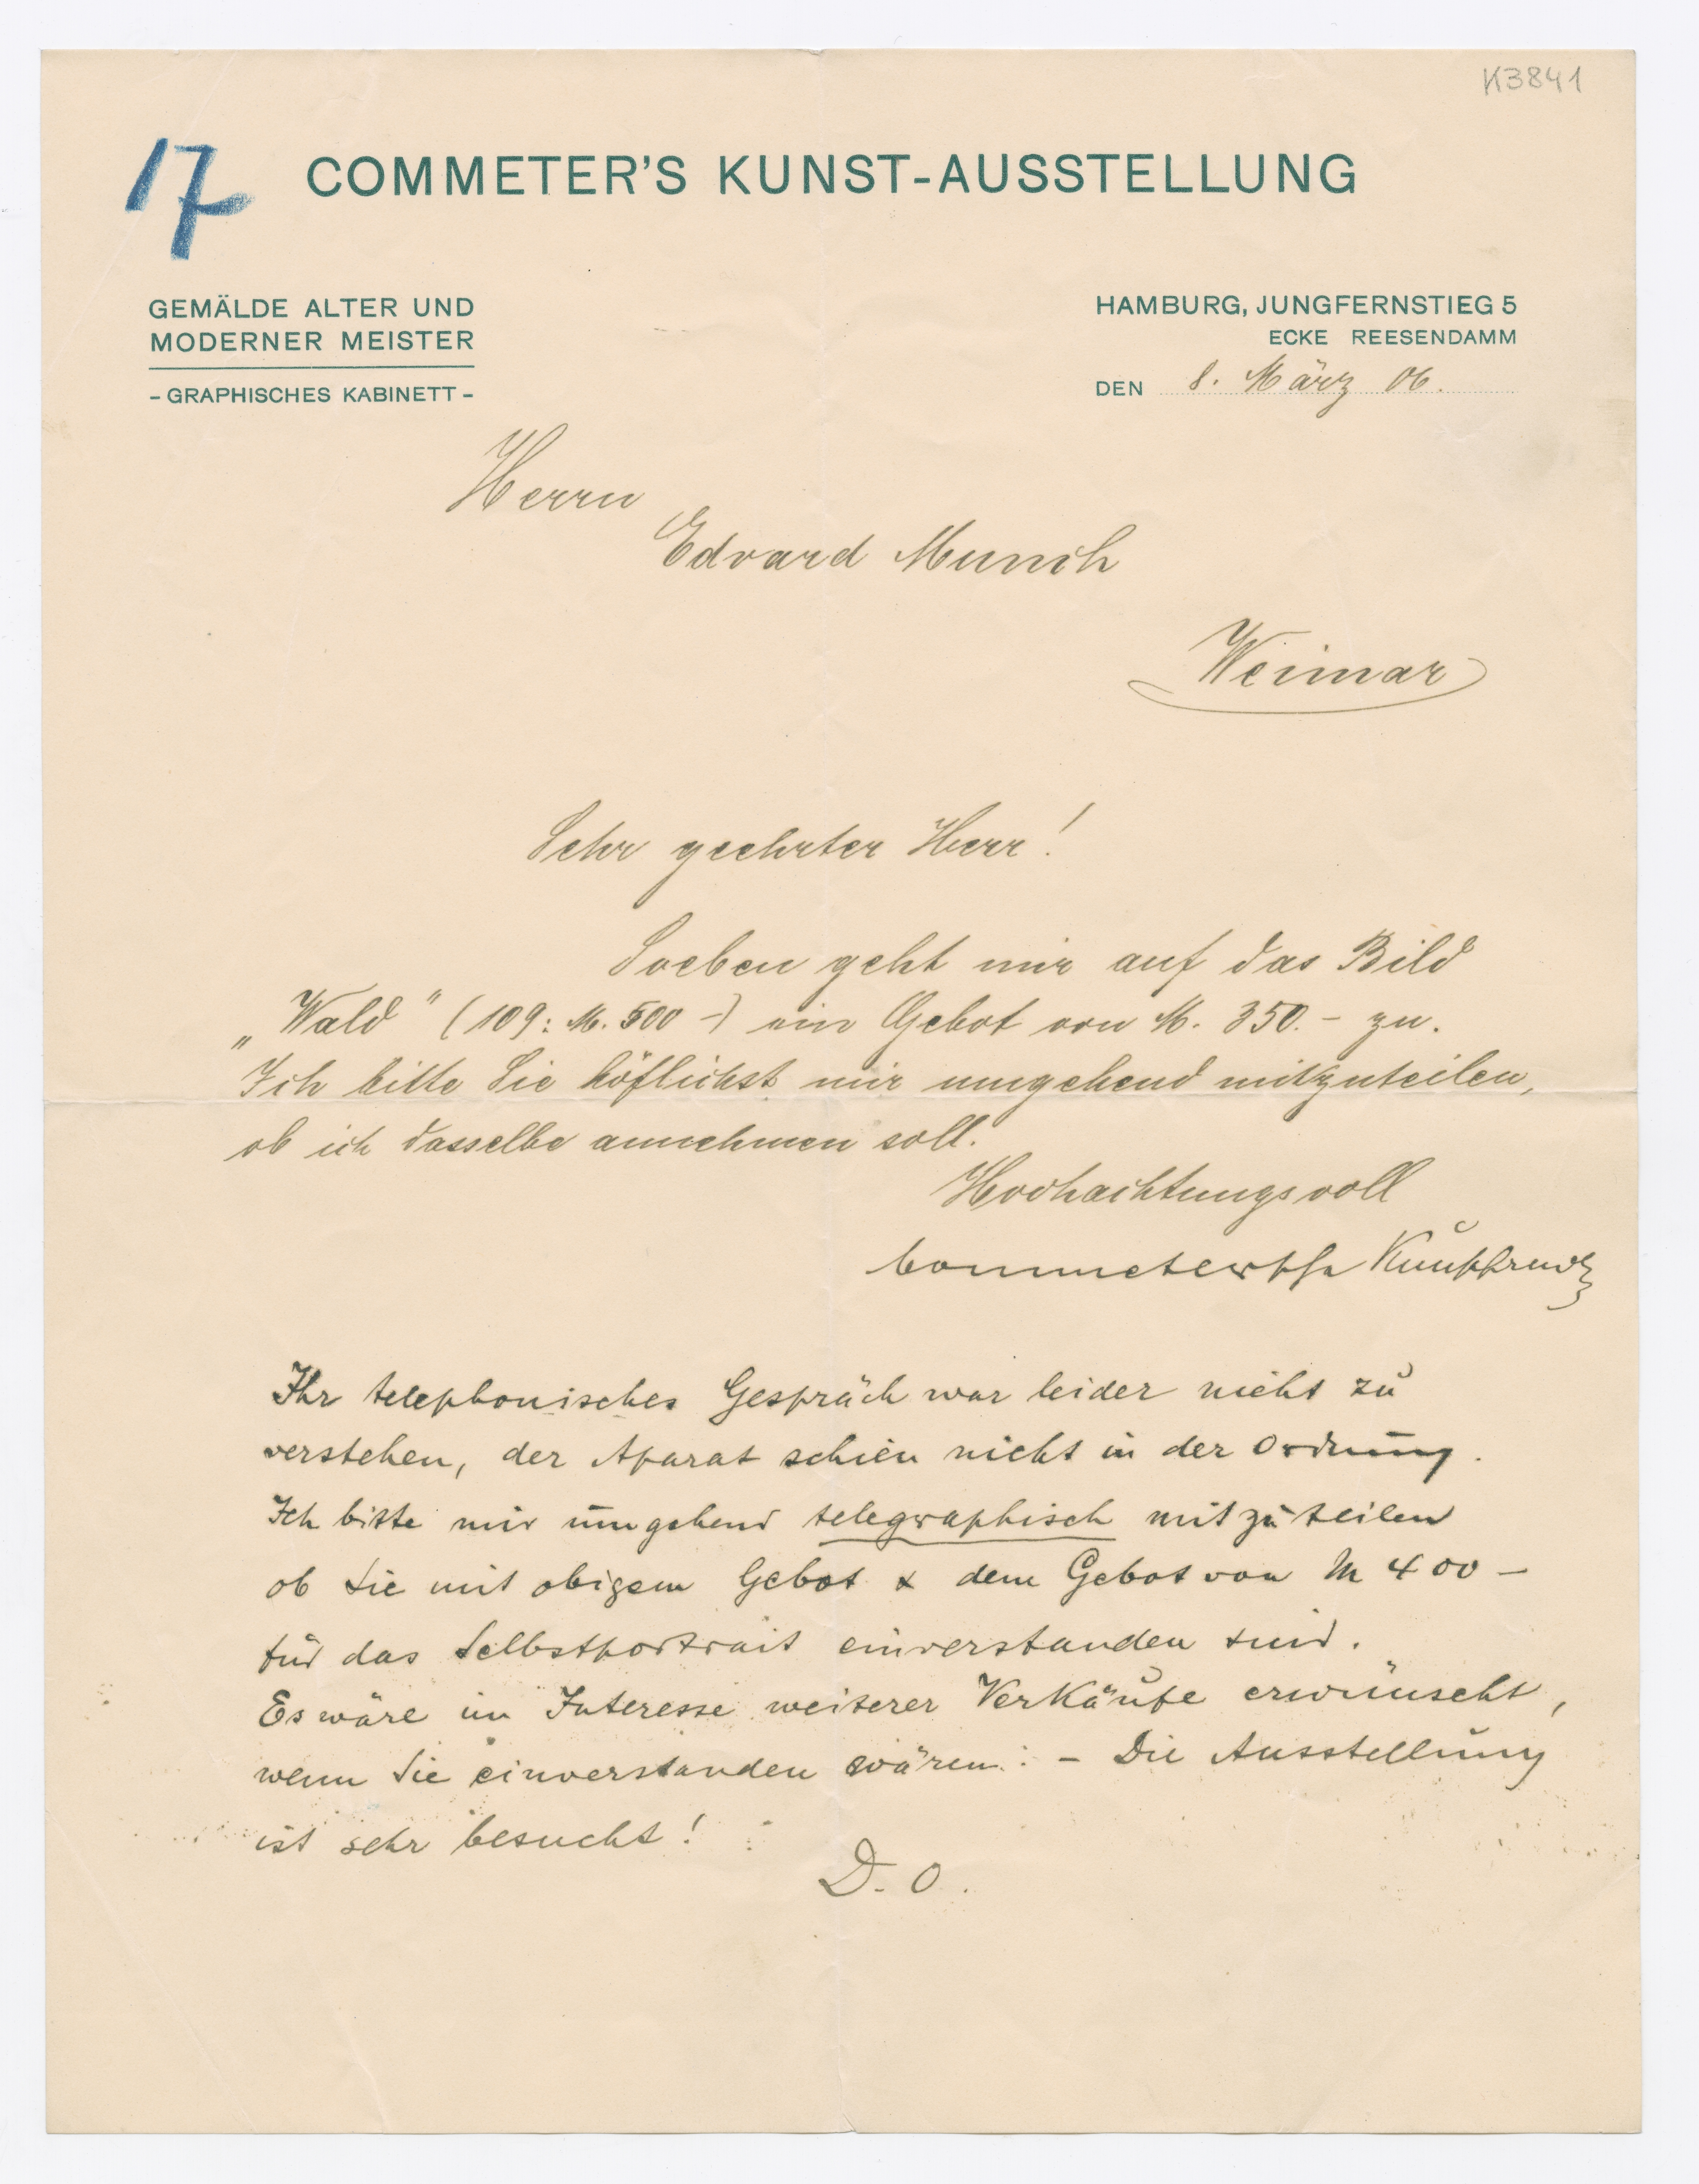 K3841
17
COMMETER'S KUNST-AUSSTELLUNG
GEMÄLDE ALTER UND
MODERNER MEISTER
- GRAPHISCHES KABINETT -
HAMBURG, JUNGFERNSTIEG 5
ECKE REESENDAMM
DEN 8. März 06.
Herrn
Edvard Munch
Weimar
Sehr geehrter Herr!
Soeben geht mir auf das Bild
„Wald" (109: M. 500 -) ein Gebot von M. 350.- zu.
Ich bitte Sie höflichst mir umgehend mitzuteilen,
ob ich dasselbe annehmen soll.
Hochachtungsvoll
Commeter
Ihr telephonisches Gespräch war leider nicht zu
verstehen, der Aparat schien nicht in der Ordnung.
Ich bitte mir umgehend telegraphisch mitzuteilen
ob Sie mit obigem Gebot & dem Gebot von M 400 -
für das Selbstportrait einverstanden sind.
Es wäre im Interesse weiterer Verkäufe erwünscht,
wenn Sie einverstanden wären. - Die Ausstellung
ist sehr besucht!
D. O.